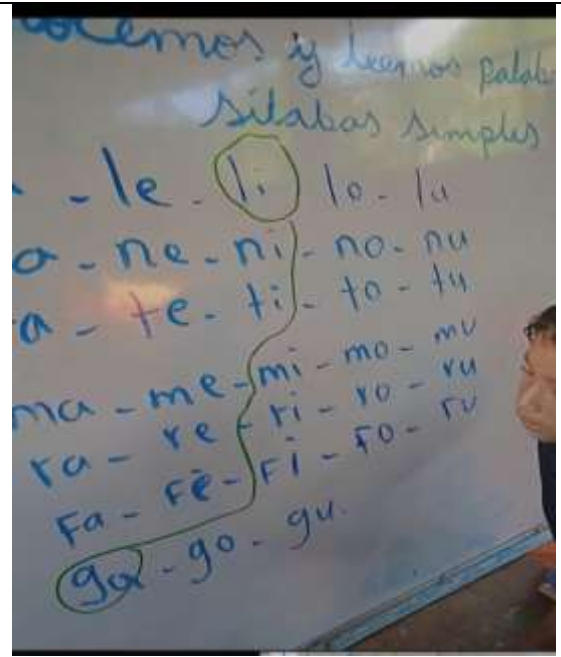 ocemos y leemos palab
Silabas simples
- le - li lo - lu
a - ne - ni - no - nu
a - te - ti - to - tu
ma - me - mi - mo - mu
ra - re - ri - ro - ru
Fa - Fe - Fi - Fo - Fu
ga - go - gu.